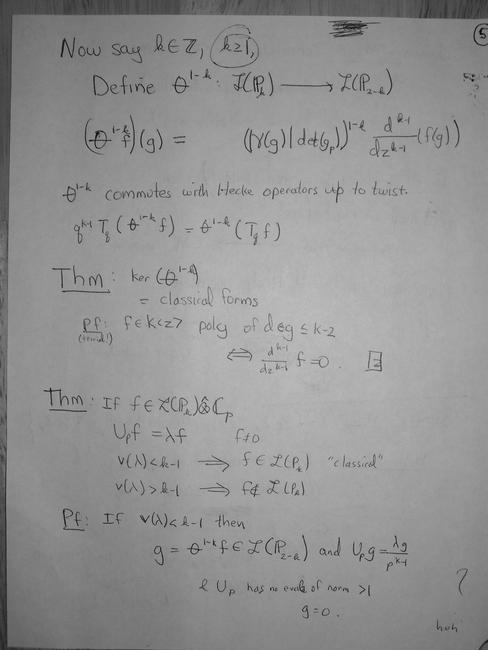 5
Now say k ∈ ℤ, k≥1,
Define θ^{1-k} : ℒ(ℙ_k) ⟶ ℒ(ℙ_{2-k})
(θ^{1-k} f)(g) = (|ν(g)| det(g_p))^{1-k} d^{k-1}/dz^{k-1} (f(g))
θ^{1-k} commutes with Hecke operators up to twist.
q^{k-1} T_q (θ^{1-k} f) = θ^{1-k} (T_q f)
Thm: ker (θ^{1-k})
= classical forms
Pf: f ∈ K<z> poly of deg ≤ k-2
(trivial!)
⟺ d^{k-1}/dz^{k-1} f = 0.
Thm: If f ∈ ℒ(ℙ_k) ⊗̂ ℂ_p
U_p f = λf f≠0
v(λ) < k-1 ⟹ f ∈ ℒ(P_k) "classical"
v(λ) > k-1 ⟹ f ∉ ℒ(P_k)
Pf: If v(λ) < k-1 then
g = θ^{1-k} f ∈ ℒ(ℙ_{2-k}) and U_p g = λg/p^{k-1}
& U_p has no evals of norm >1
g=0.
?
huh